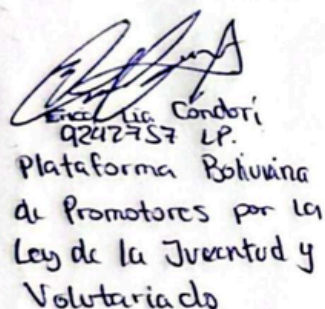 Condori
9242757 LP.
Plataforma Boliviana
de Promotores por la
Ley de la Juventud y
Volutariado